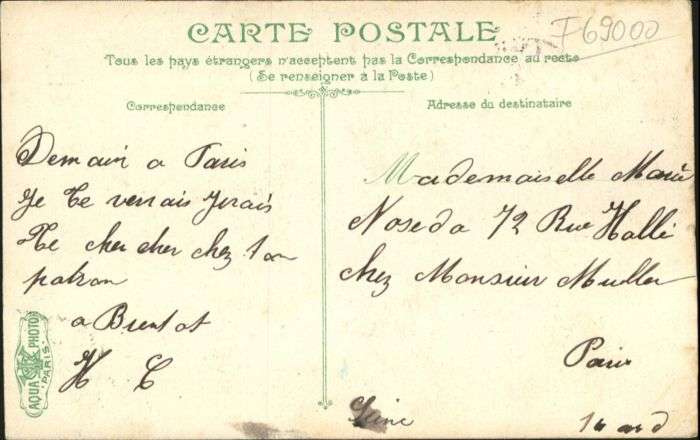 CARTE POSTALE
F69000
Tous les pays étrangers n'acceptent pas la Correspondance au recto
(Se renseigner à la Poste)
Correspondance
Demain a Paris
Je te verrais Jerais
te chercher chez ton
patron
a Bientot
H C
AQUA PHOTO
PARIS
Adresse du destinataire
Mademoiselle Marie
Noseda 72 Rue Hallé
chez Monsieur Muller
Paris
Seine
14 ard